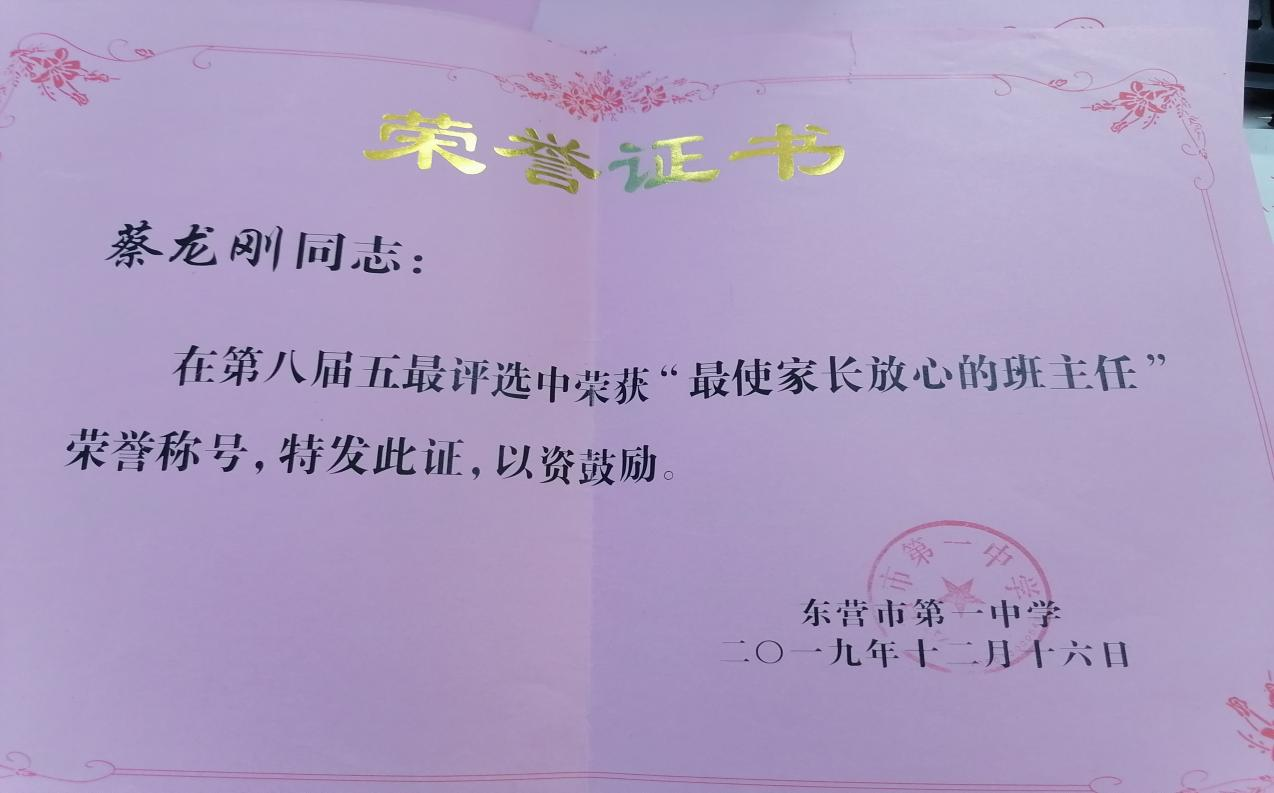 荣誉证书
蔡龙刚同志：
在第八届五最评选中荣获“最使家长放心的班主任”
荣誉称号，特发此证，以资鼓励。
市第一中学
东营市第一中学
二〇一九年十二月十六日